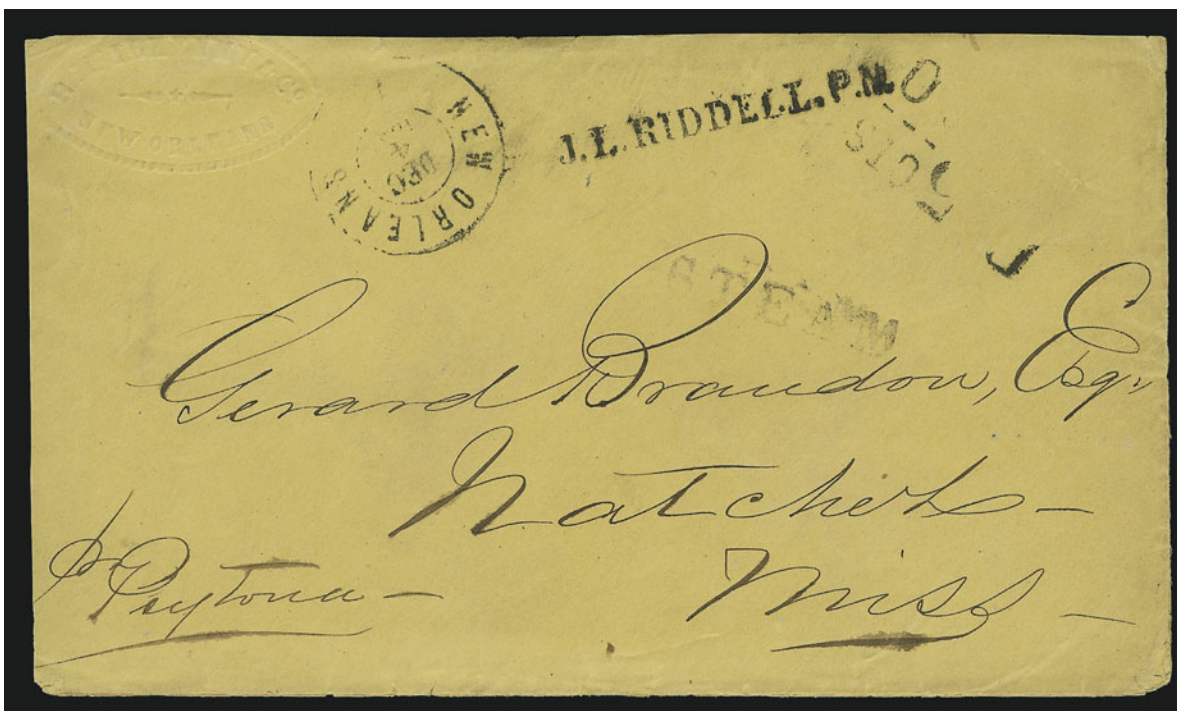 NEW ORLEANS
NEW ORLEANS
DEC
J.L. RIDDELL. P.M.
STEAM
Gerard Brandon, Esqr
Natchets -
Miss -
pr Peytona -